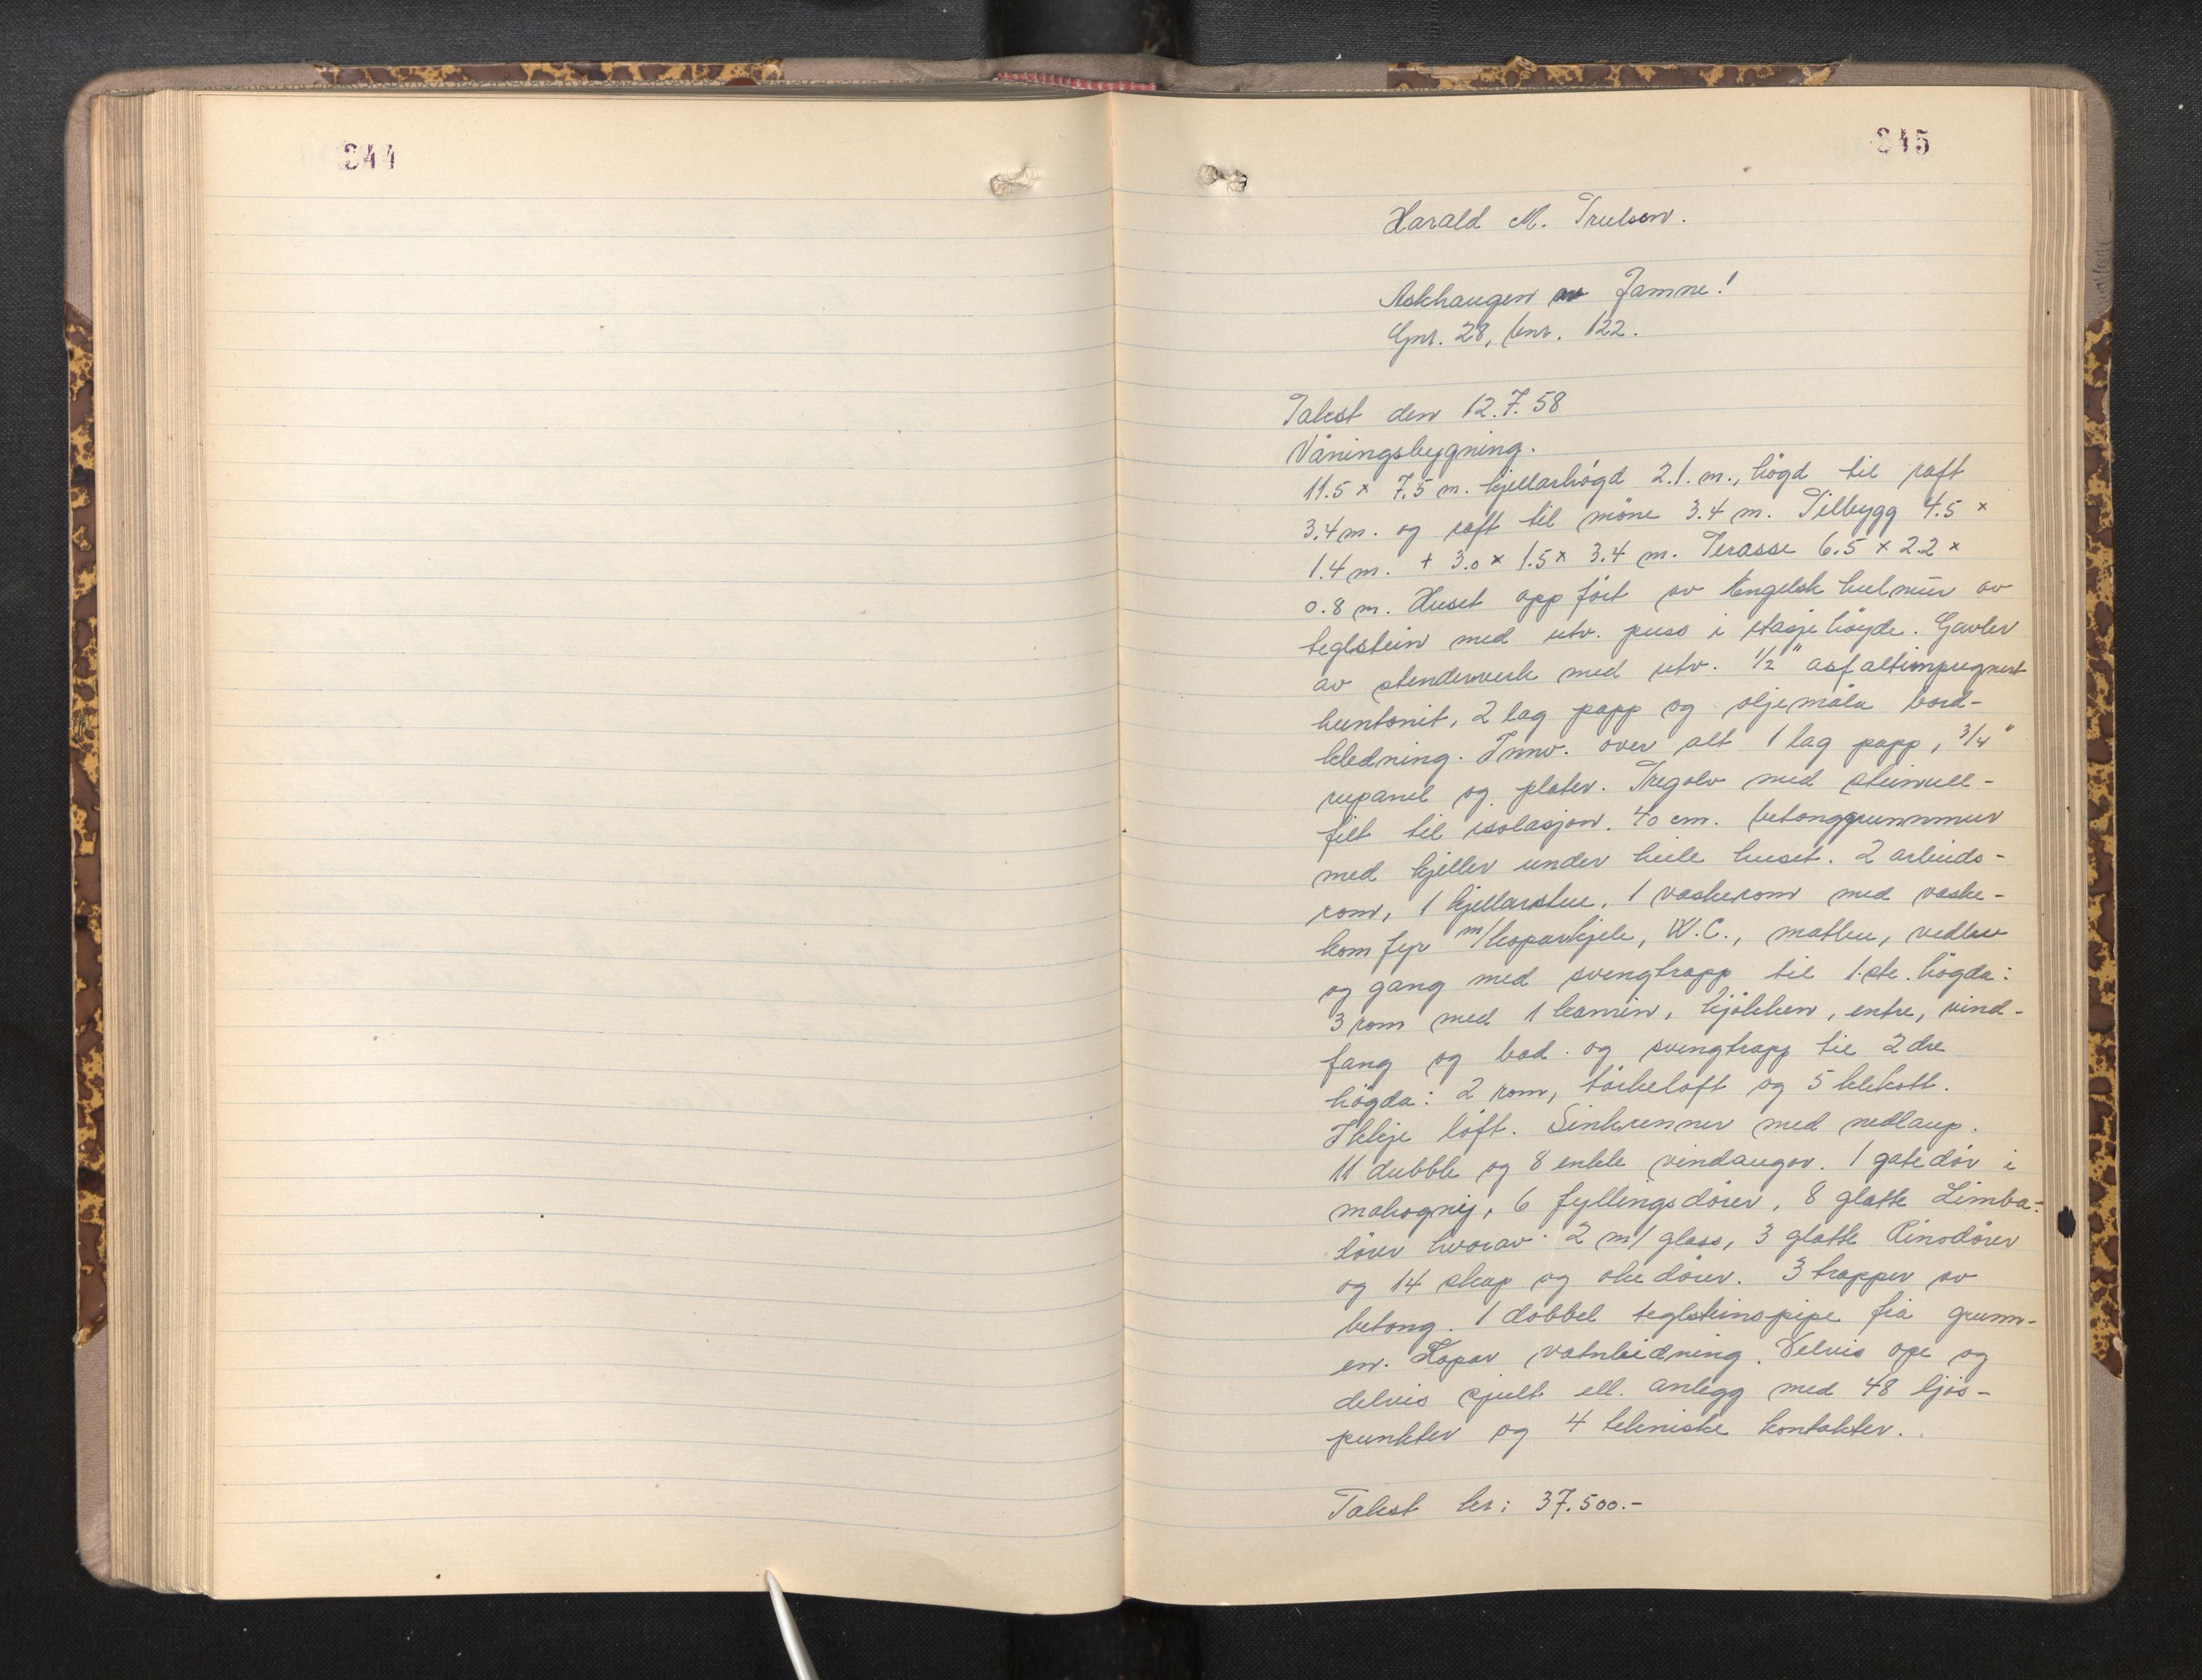 244
245
Harald M. Trulsen.
Askhaugen av Jamne!
Gnr. 28, bnr. 122.
Takst den 12.7.58
Våningsbygning.
11.5 x 7,5 m. kjellarhögd 2.1. m., högd til raft
3.4 m. og raft til möne 3.4 m. Tilbygg 4.5 x
1.4 m. + 3.0 x 1.5 x 3.4 m. Terasse 6.5 x 2.2 x
0.8 m. Huset oppfört av Engelsk hulmur av
teglstein med utv. puss i etasjehöyde. Gavler
av stenderverk med utv. 1/2" asfaltimpregnert
huntonit, 2 lag papp og oljemåla bord-
kledning. Innv. over alt 1 lag papp, 3/4"
rupanel og plater. Tregolv med steinull-
filt til isolasjon. 40 cm. betonggrunnmur
med kjeller under heile huset. 2 arbeids-
rom, 1 kjellarstue, 1 vaskerom med vaske-
komfyr m/koparkjele, W.C., matbu, vedbu
og gang med svengtrapp til 1.ste. högda:
3 rom med 1 kamin, kjökken, entre, vind-
fang og bad. og svengtrapp til 2dre
högda: 2 rom, törkeloft og 5 klekott.
Ikkje loft. Sinkrenner med nedlaup.
11 dubble og 8 enkle vindaugor. 1 gatedör i
mahogny, 6 fyllingsdörer, 8 glatte Limba-
törer hvorav 2 m/ glass, 3 glatte Rinodörer
og 14 skap og dörer. 3 trapper av
betong. 1 dobbel teglsteinspipe frå grunn-
en. Kopar vatnleidning. Delvis ope og
delvis sjult ell. anlegg med 48 ljos-
punkter og 4 tekniske kontakter.
Takst kr: 37.500.-